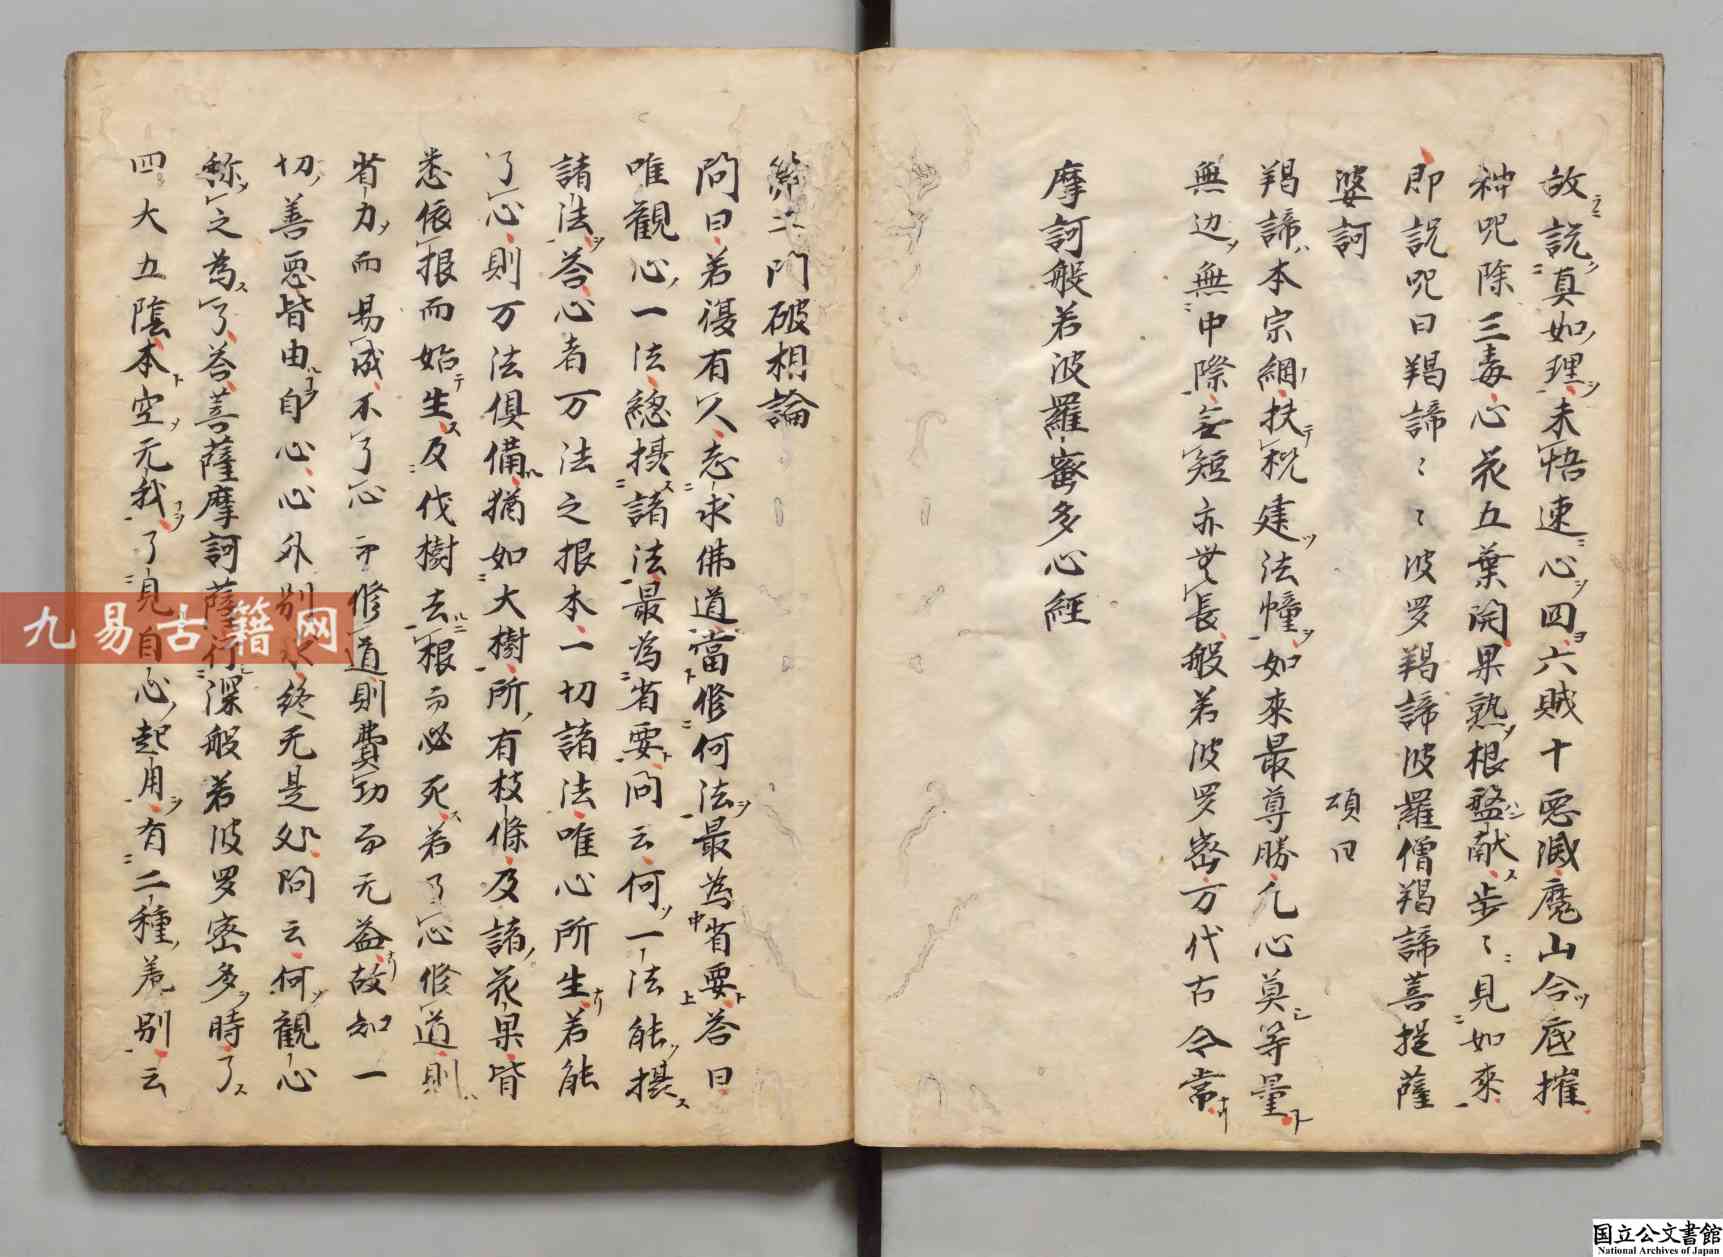 故説真如理未悟速心四六賊十悪滅魔山合底摧
神呪除三毒心花五葉開果熟根盤献歩〻見如来
即説呪曰羯諦〻〻波罗羯諦波羅僧羯諦菩提薩
婆訶 頌曰
羯諦本宗綱扶機建法幢如来最尊勝凡心莫等量
無边無中際無短亦無長般若波罗密万代古今常
摩訶般若波羅蜜多心経
第二門破相論
問曰若復有人志求佛道當修何法最為省要荅曰
唯觀心一法總摂諸法最為省要問云何一法能摂
諸法荅心者万法之根本一切諸法唯心所生若能
了心則万法俱備猶如大樹所有枝條及諸花果皆
悉依根而始生及伐樹去根而必死若了心修道則
省力而易成不了心而修道則費功而无益故知一
切善悪皆由自心心外別求終无是処問云何觀心
称之為了荅菩薩摩訶薩行深般若波罗密多時了
四大五陰本空无我了見自心起用有二種差别云
九易古籍网
国立公文書館
National Archives of Japan